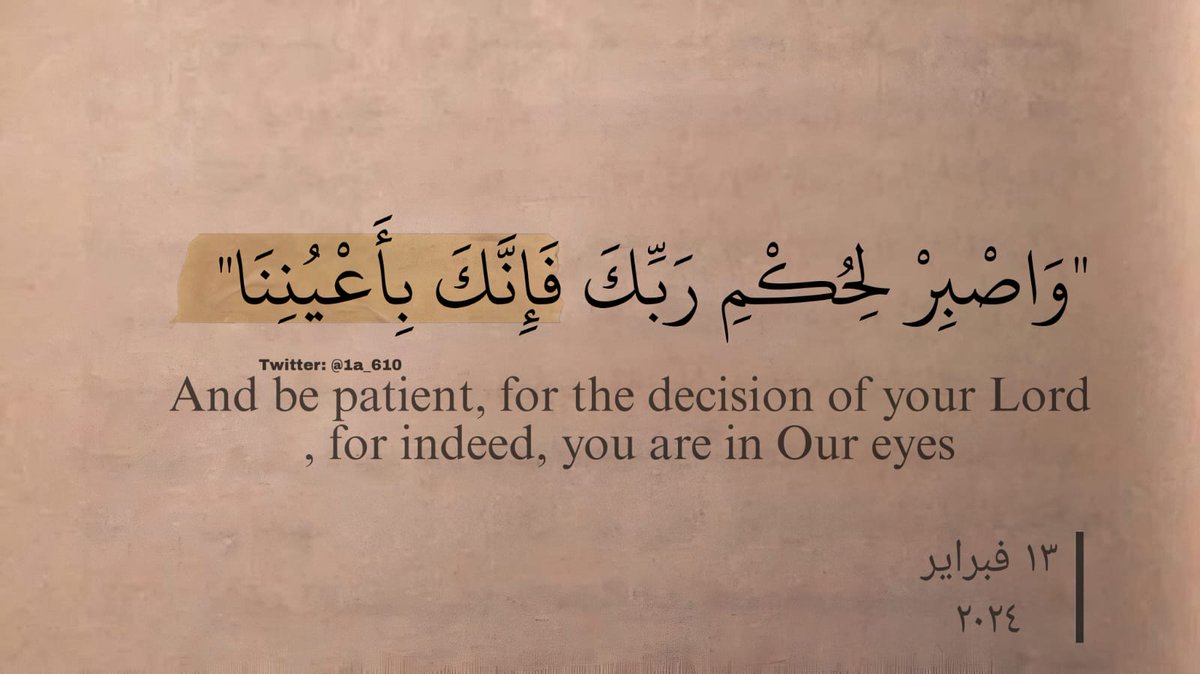 "وَاصْبِرْ لِحُكْمِ رَبِّكَ فَإِنَّكَ بِأَعْيُنِنَا"
Twitter: @1a_610
And be patient, for the decision of your Lord
, for indeed, you are in Our eyes
١٣ فبراير
٢٠٢٤